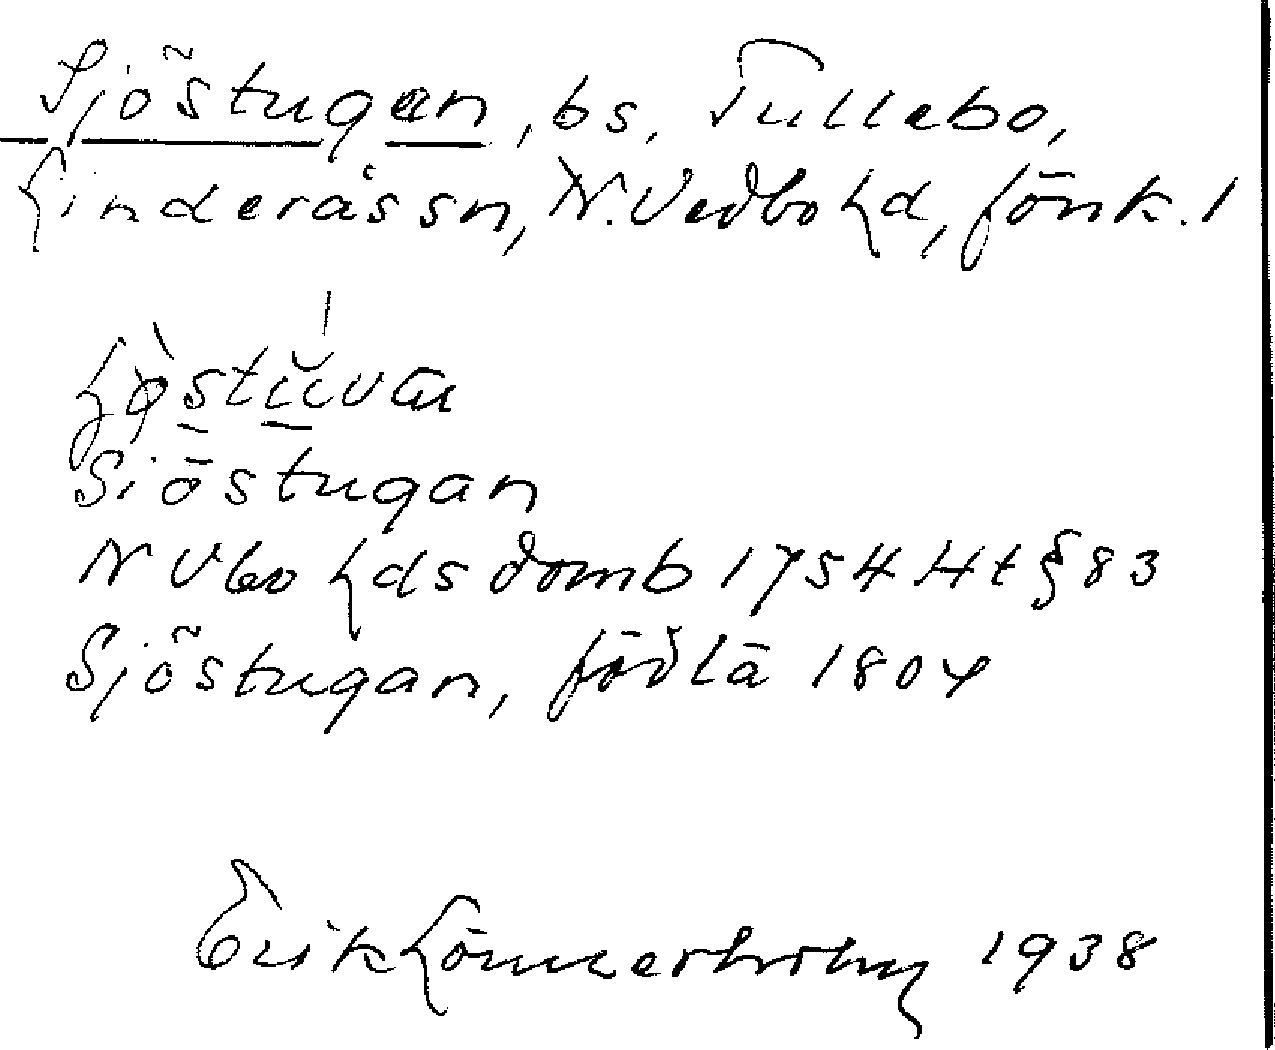 Sjöstugan, bs, Tullebo,
Linderås sn, N. Vedbo hd, Jönk. l
Sjöstugan
N Vbo hds domb 1754 Ht § 83
Sjöstugan, födlä 1804
Erik Lönnerholm 1938